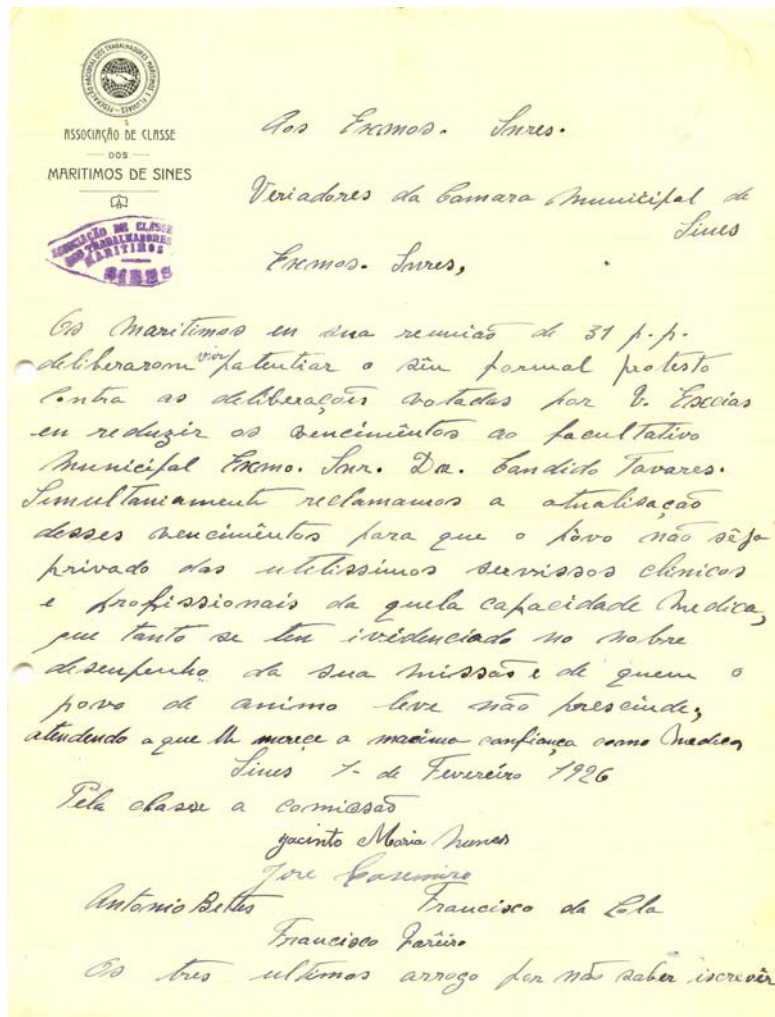 FEDERAÇÃO NACIONAL DOS TRABALHADORES MARITIMOS E FLUVIAES
ASSOCIAÇÃO DE CLASSE
DOS
MARITIMOS DE SINES
ASSOCIAÇÃO DE CLASSE
DOS TRABALHADORES
MARITIMOS
SINES
Aos Exmos. Snres.
Veriadores da Camara Municipal de
Sines
Exmos. Snres,
Os Maritimos en sua reunião de 31 p.p.
deliberarom vir patentiar o sêu formal protesto
contra as deliberações votadas por V. Excias
en reduzir os vencimêntos ao facultativo
Municipal Exmo. Snr. Dr. Candido Tavares.
Simultaniamente reclamamos a atualisação
desses vencimêntos para que o pôvo não sêja
privado das utelissimos servissos clinicos
e profissionais da quela capacidade Medica,
que tanto se ten ividenciado no nobre
desenpenho da sua missão e de quem o
povo de animo leve não prescinde,
atendendo a que lh merece a maxima confiança como Medico,
Sines 1- de Fevereiro 1926
Pela classe a comissão
Jacinto Maria Nunes
Jose Casemiro
Antonio Francisco da Lola
Francisco
Os tres ultimos arrogo por não saber iscrevêr